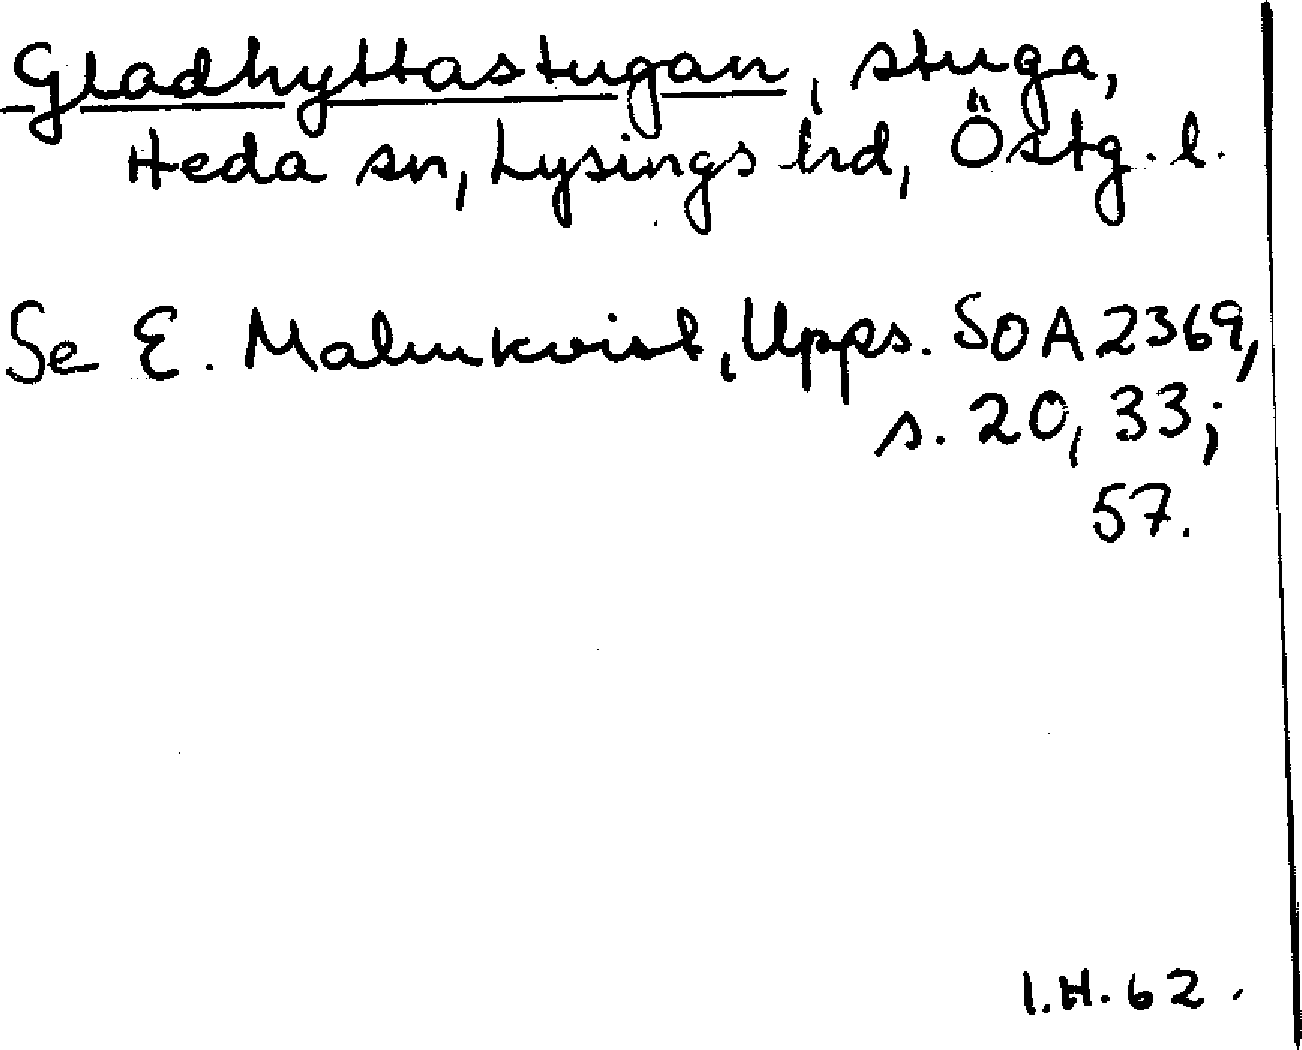 Gladhyttastugan, stuga,
Heda sn, Lysings hd, Östg. l.
Se E. Malmkvist, Upps. SOA 2369,
s. 20, 33;
57.
I.H. 62.